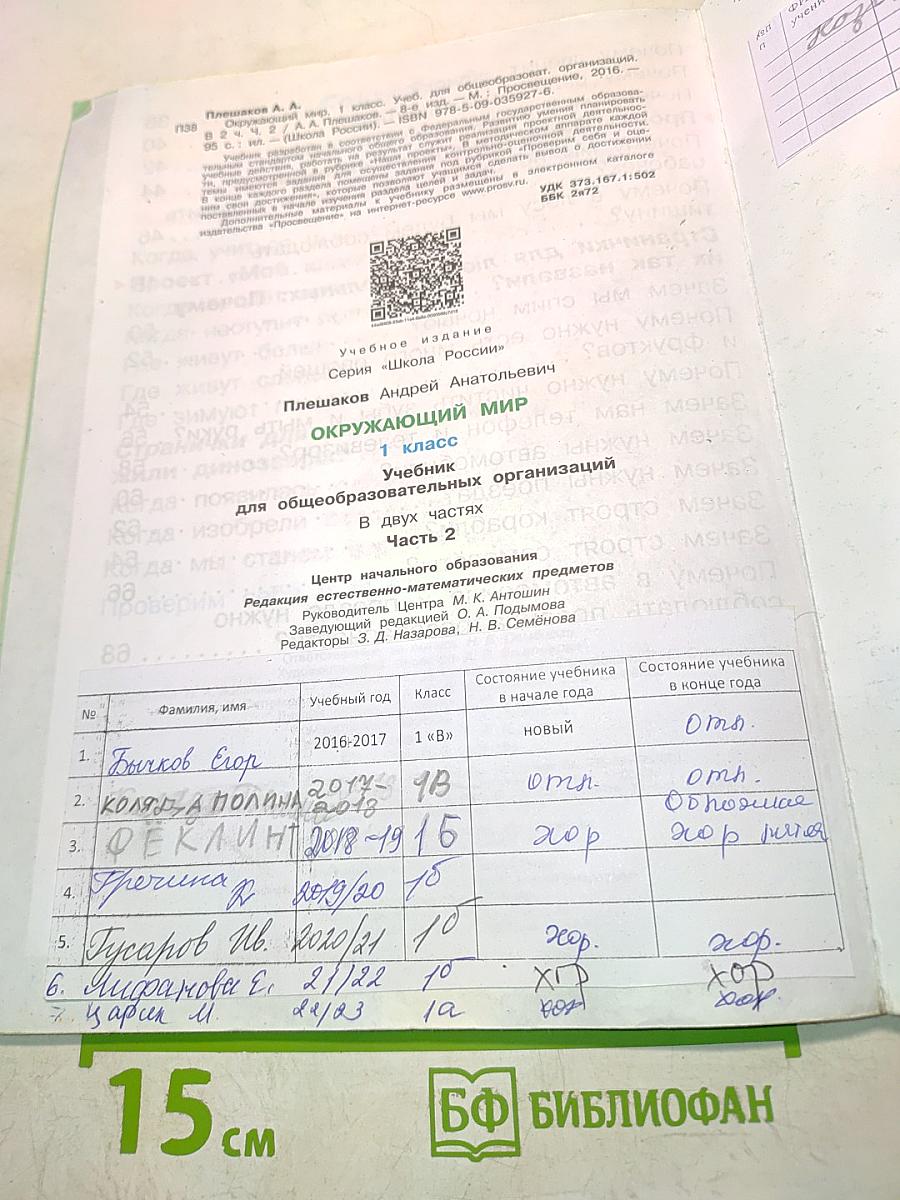 Плешаков А. А.
П38 Окружающий мир. 1 класс. Учеб. для общеобразоват. организаций.
В 2 ч. Ч. 2 / А. А. Плешаков. — 8-е изд. — М. : Просвещение, 2016. —
95 с. : ил. — (Школа России). — ISBN 978-5-09-035927-6.
Учебник разработан в соответствии с Федеральным государственным образова-
тельным стандартом начального общего образования. Развитию умения планировать
учебные действия, работать на результат служит реализация проектной деятельнос-
ти, предусмотренной в рубрике «Наши проекты». В методическом аппарате каждой
темы имеются задания для осуществления контрольно-оценочной деятельности.
В конце каждого раздела помещены задания под рубрикой «Проверим себя и оце-
ним свои достижения», которые позволяют учащимся сделать вывод о достижении
поставленных в начале изучения раздела целей и задач.
Дополнительные материалы к учебнику размещены в электронном каталоге
издательства «Просвещение» на интернет-ресурсе www.prosv.ru.
УДК 373.167.1:502
ББК 2я72
Учебное издание
Серия «Школа России»
Плешаков Андрей Анатольевич
ОКРУЖАЮЩИЙ МИР
1 класс
Учебник
для общеобразовательных организаций
В двух частях
Часть 2
Центр начального образования
Редакция естественно-математических предметов
Руководитель Центра М. К. Антошин
Заведующий редакцией О. А. Подымова
Редакторы З. Д. Назарова, Н. В. Семёнова
№ Фамилия, имя Учебный год Класс Состояние учебника в начале года Состояние учебника в конце года
1. Бычков Егор 2016-2017 1 «В» новый отл.
2. ПОЛИНА 2017-2018 1В отл. отл.
3. ФЕКЛИН 2018-19 1Б хор хор
4. Гречина 2019/20 1б
5. Гусаров Ив. 2020/21 1б хор. хор.
6. Лифанова Е. 21/22 1б хор хор
7. Царик М. 22/23 1а хор хор.
15 см
БФ БИБЛИОФАН